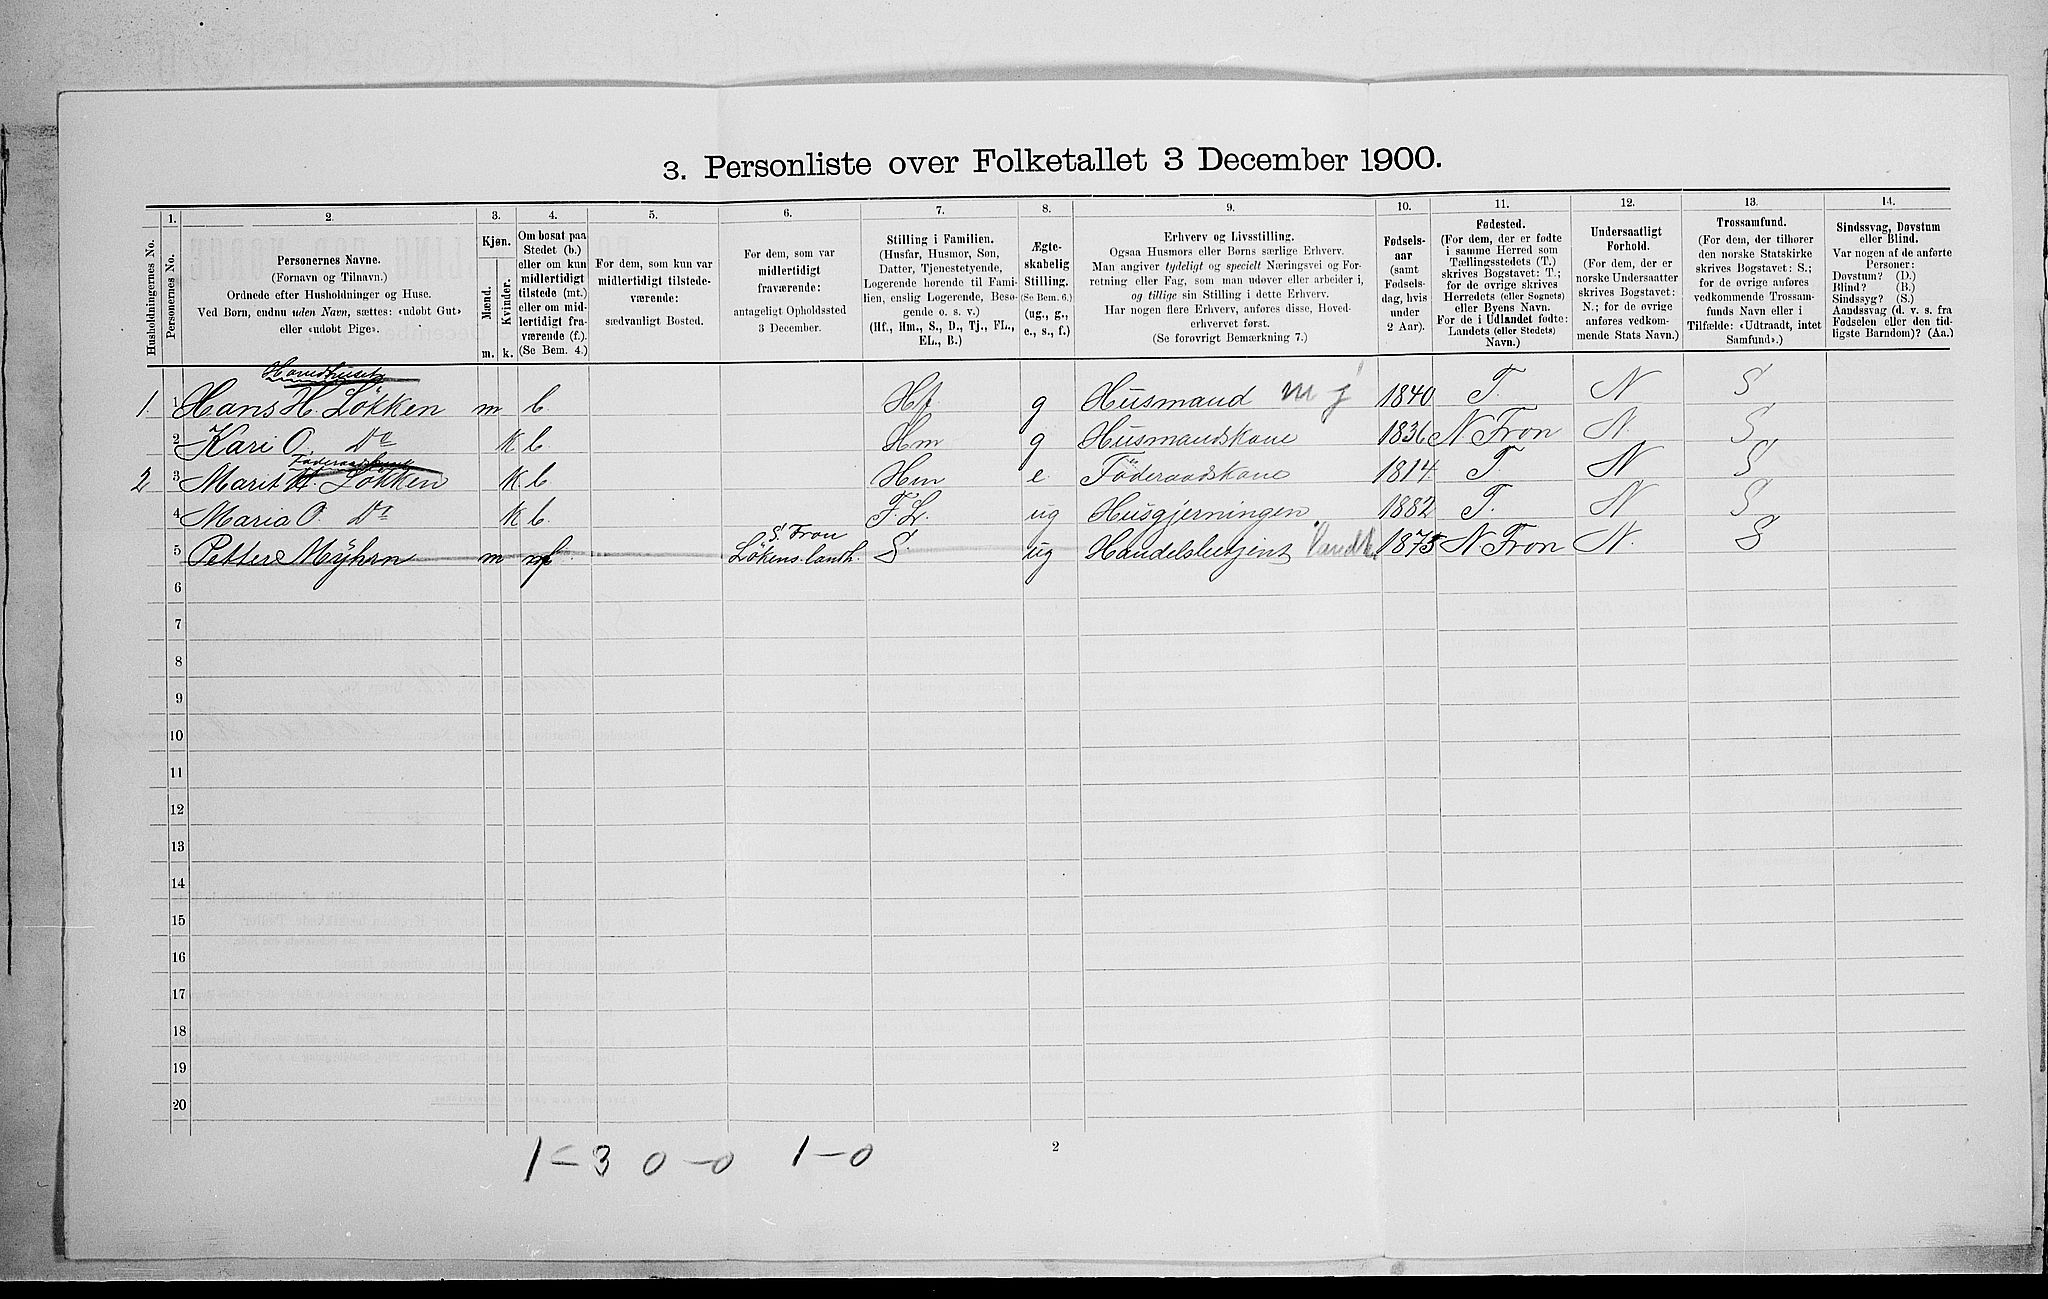 3. Personliste over Folketallet 3 December 1900.
1. 2. 3. 4. 5. 6. 7. 8. 9. 10. 11. 12. 13. 14.
Husholdningernes No.
Personernes No.
Personernes Navne.
(Fornavn og Tilnavn.)
Ordnede efter Husholdninger og Huse.
Ved Børn, endnu uden Navn, sættes: «udøbt Gut»
eller «udøbt Pige».
Kjøn.
Mænd.
Kvinder.
m. k.
Om bosat paa
Stedet (b.)
eller om kun
midlertidigt
tilstede (mt.)
eller om mid-
lertidigt fra-
værende (f.)
(Se Bem. 4.)
For dem, som kun var
midlertidigt tilstede-
værende:
sædvanligt Bosted.
For dem, som var
midlertidigt
fraværende:
antageligt Opholdssted
3 December.
Stilling i Familien.
(Husfar, Husmor, Søn,
Datter, Tjenestetyende,
Logerende hørende til Fami-
lien, enslig Logerende, Besø-
gende o. s. v.)
(Hf., Hm., S., D., Tj., FL.,
EL., B.)
Ægte-
skabelig
Stilling.
(Se Bem. 6.)
(ug., g.,
e., s., f.)
Erhverv og Livsstilling.
Ogsaa Husmors eller Børns særlige Erhverv.
Man angiver tydeligt og specielt Næringsvei og For-
retning eller Fag, som man udøver eller arbeider i,
og tillige sin Stilling i dette Erhverv.
Har nogen flere Erhverv, anføres disse, Hoved-
erhvervet først.
(Se forøvrigt Bemærkning 7.)
Fødsels-
aar
(samt
Fødsels-
dag, hvis
under
2 Aar).
Fødested.
(For dem, der er fødte
i samme Herred som
Tællingsstedets (T.)
skrives Bogstavet: T.;
for de øvrige skrives
Herredets (eller Sognets)
eller Byens Navn.
For de i Udlandet fødte:
Landets (eller Stedets)
Navn.)
Undersaatligt
Forhold.
(For dem, der er
norske Undersaatter
skrives Bogstavet:
N.; for de øvrige
anføres vedkom-
mende Stats Navn.)
Trossamfund.
(For dem, der tilhører
den norske Statskirke
skrives Bogstavet: S.;
for de øvrige anføres
vedkommende Trossam-
funds Navn eller i
Tilfælde: «Udtraadt, intet
Samfund».)
Sindssvag, Døvstum
eller Blind.
Var nogen af de anførte
Personer:
Døvstum? (D.)
Blind? (B.)
Sindssyg? (S.)
Aandssvag (d. v. s. fra
Fødselen eller den tid-
ligste Barndom)? (Aa.)
Hovedhuset
1. 1 Hans H. Løkken m b. Hf. g Husmand m j 1840 T. N S
2 Kari O. Do k b. Hm g Husmandskone 1836 N Fron N. S
Føderaadhuset
2 3 Marit H. Løkken k b Hm e. Føderaadskone 1814 T. N S
4 Maria O. Do k b. F.L. ug Husgjerningen 1882 T. N S
S. Fron
5 Petter Myhrn m f Løkens landh. S. ug Handelsbetjent Landh. 1875 N Fron N. S
6
7
8
9
10
11
12
13
14
15
16
17
18
19
20
1-3 0-0 1-0
2